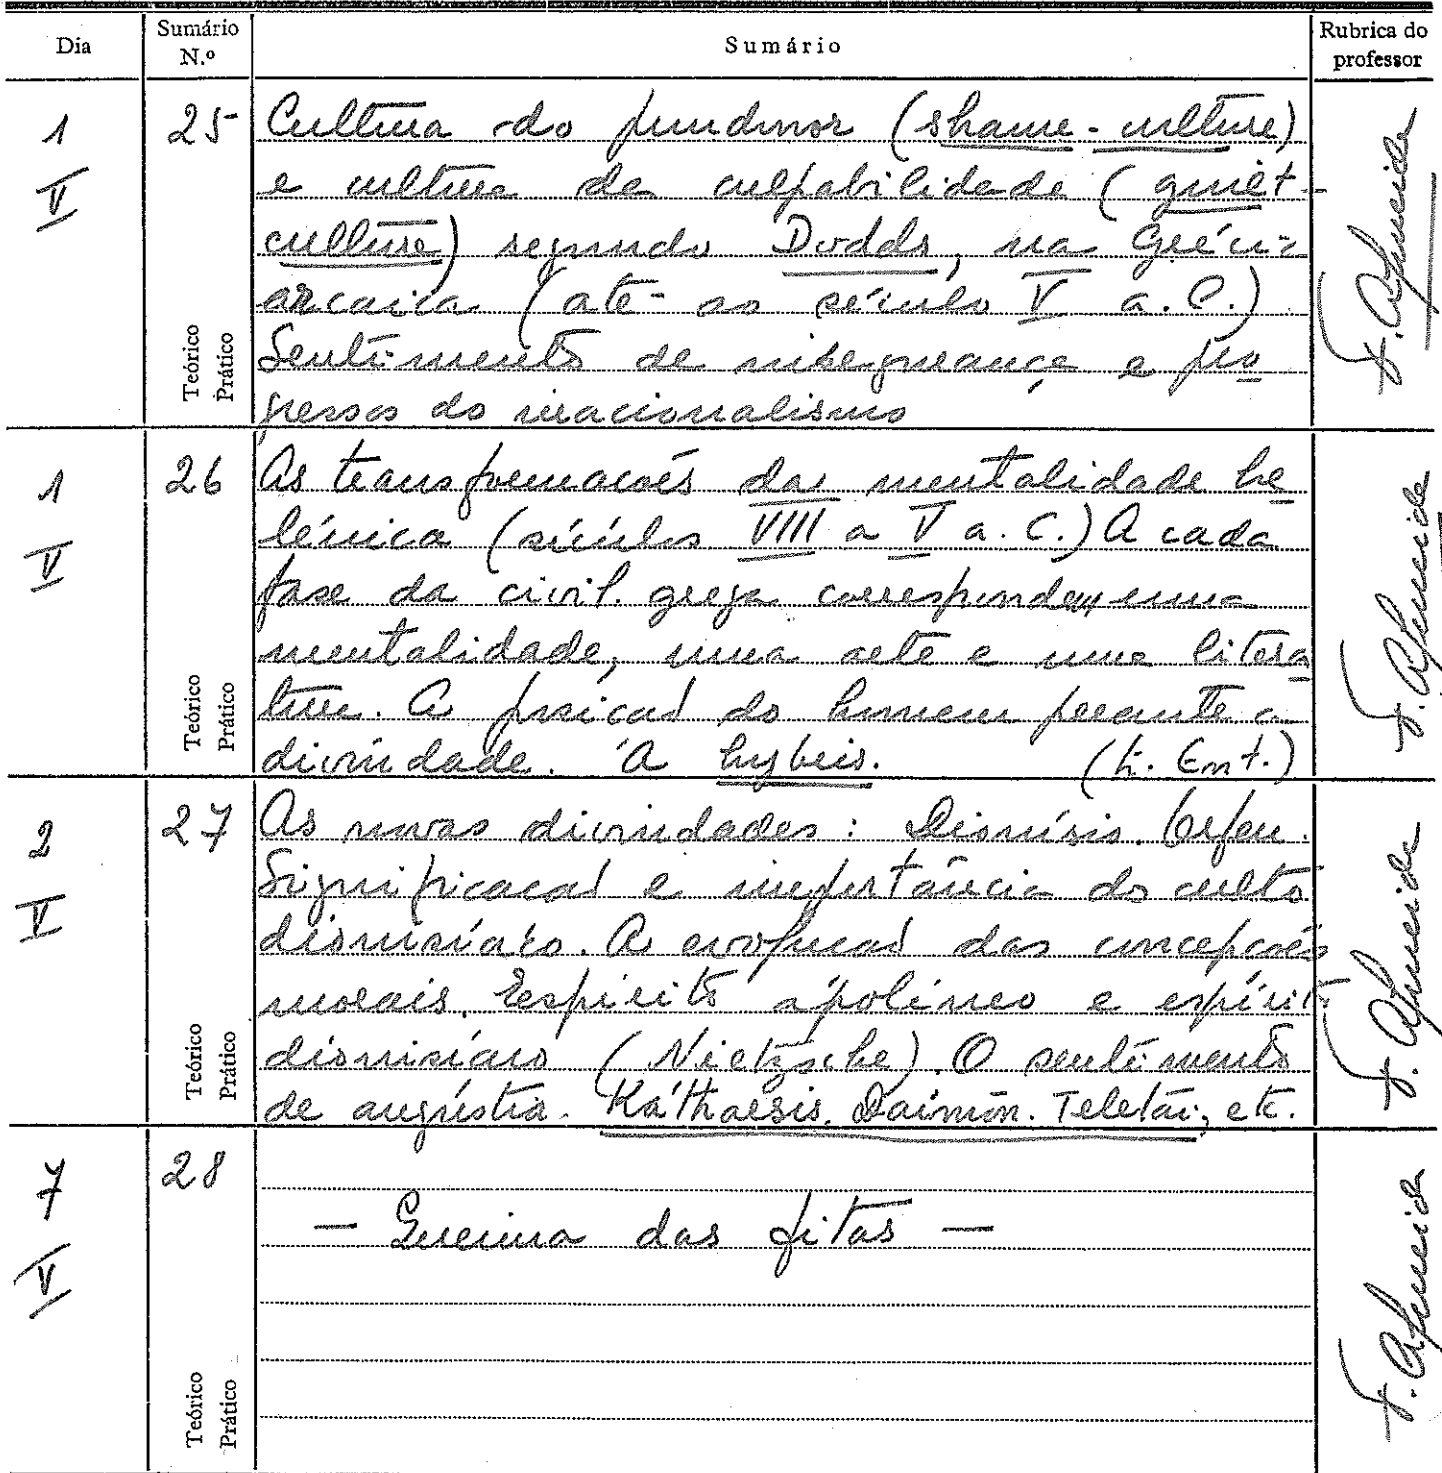 Dia Sumário N.º Sumário Rubrica do professor
1 V 25 Teórico Prático
Cultura do pundonor (shame-culture)
e cultura da culpabilidade (guilt-
culture) segundo Dodds, na Grécia
arcaica (até ao século V a.C.)
Sentimento de insegurança e pro
gressos do irracionalismo
F. Almeida
1 V 26 Teórico Prático
As transformações da mentalidade he
lénica (séculos VIII a V a.C.) A cada
fase da civil. grega correspondem uma
mentalidade, uma arte e uma litera
tura. A posição do homem perante a
divindade. A hybris. (h. Ent.)
F. Almeida
2 V 27 Teórico Prático
As novas divindades: Dionísio. Orfeu.
Significação e importância do culto
dionisíaco. A evolução das concepções
morais. Espírito apolíneo e espírito
dionisíaco (Nietzsche). O sentimento
de angústia. Kátharsis. Daimon. Teletai, etc.
F. Almeida
7 V 28 Teórico Prático
— Queima das fitas —
F. Almeida